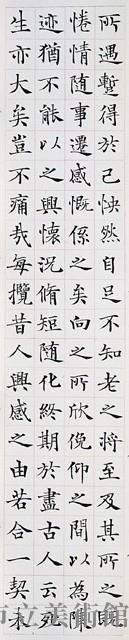 所遇蹔得於己怏然自足不知老之將至及其所之既
惓情隨事遷感慨係之矣向之所欣俛仰之間以為陳
迹猶不能以之興懷況脩短隨化終期於盡古人云死
生亦大矣豈不痛哉每攬昔人興感之由若合一契未
市立美術館